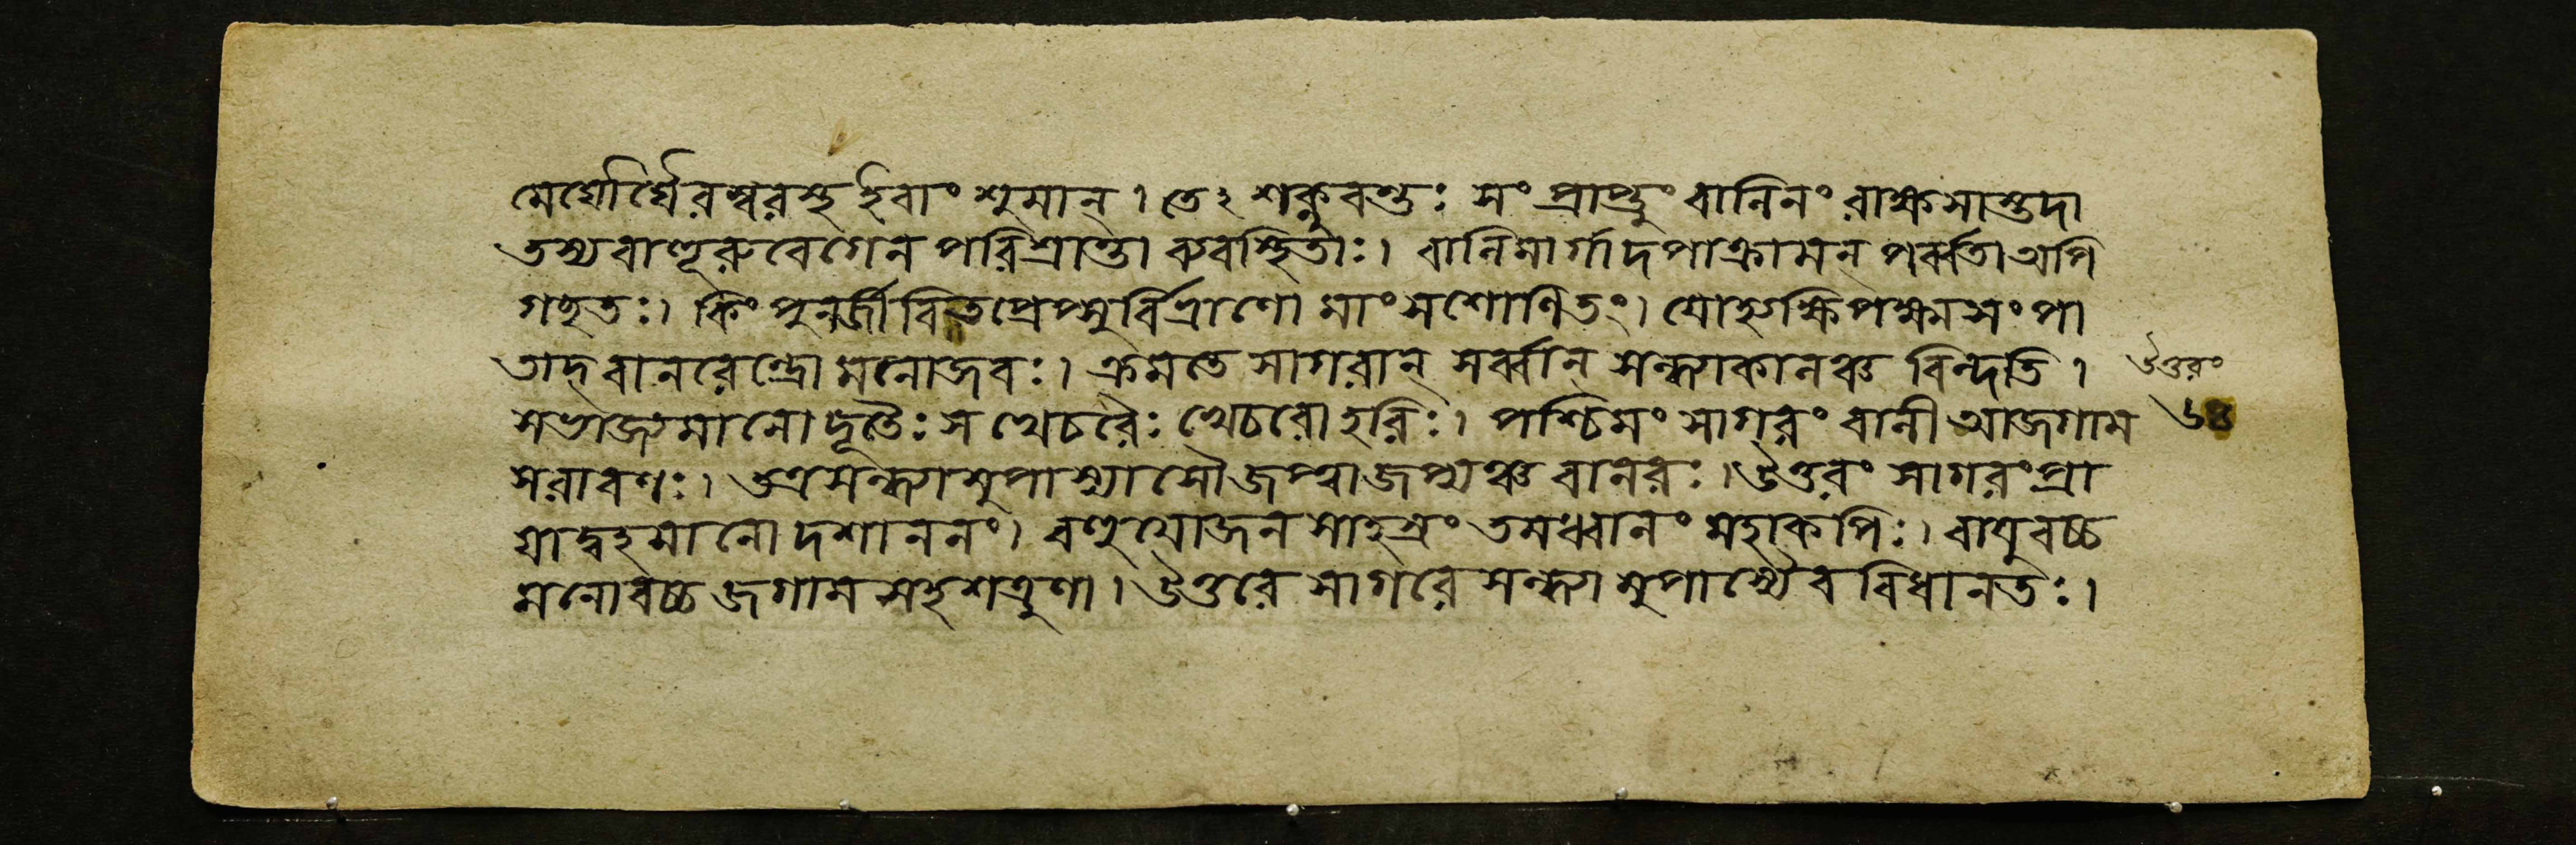 মেঘৌঘৈরম্বরস্থ ইবাংশুমান্। তেঽশক্নুবন্তঃ সংপ্রাপ্তুং বালিনং রাক্ষসাস্তদা
তস্য বাণূরুবেগেন পরিশ্রান্তা ব্যবস্থিতাঃ। বালিমার্গাদপাক্রামন্ পর্ব্বতা অপি
গচ্ছতঃ। কিং পুনর্জীবিতপ্রেপ্সুর্বিভ্রাণো মাংসশোণিতং। যোঽগক্ষিপক্ষ্মসংপা
তাদ্ বানরেন্দ্রো মনোজবঃ। ক্রমতে সাগরান্ সর্ব্বান্ সন্ধ্যাকালঞ্চ বিন্দতি।
সভাজ্যমানো দূতৈঃ স খেচরৈঃ খেচরো হরিঃ। পশ্চিমং সাগরং বালী আজগাম
সরাবণঃ। তত্র সন্ধ্যামুপাস্যাসৌ জপ্ত্বা জপ্যঞ্চ বানরঃ। উত্তরং সাগরং প্রা
য়াদ্বহমানো দশাননং। বহুযোজনসাহস্রং তমধ্বানং মহাকপিঃ। বায়ুবচ্চ
মনোবচ্চ জগাম সহ শত্রুণা। উত্তরে সাগরে সন্ধ্যামুপাস্যৈব বিধানতঃ।
উত্তরং
৬৪